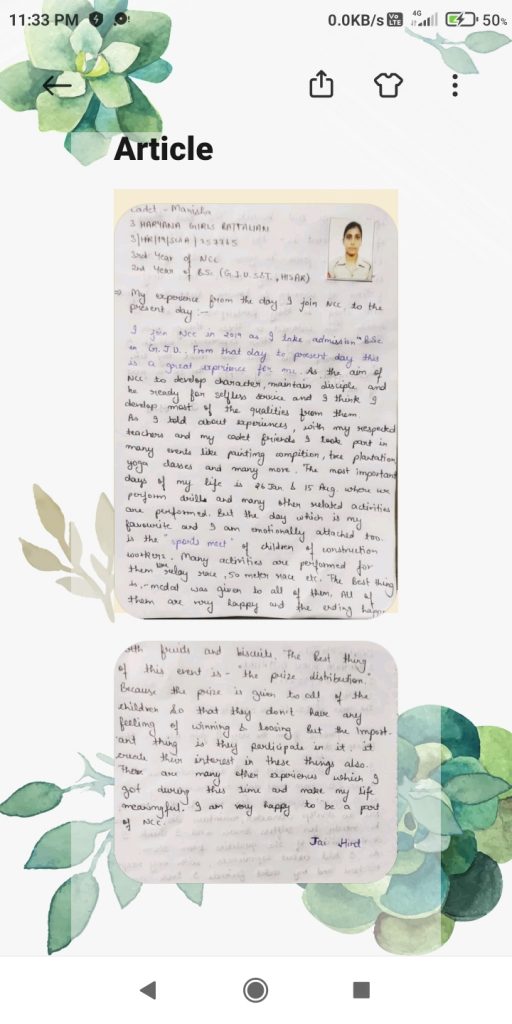 11:33 PM
0.0KB/s Vo LTE 4G 50%
Article
Cadet - Manisha
3 HARYANA GIRLS BATTALIAN
3rd Year of NCC
2nd Year of BSc (G.J.U. S&T., HISAR)
=> My experience from the day I join NCC to the
present day :-
I join NCC in 2019 as I take admission BSc
in G.J.U. From that day to present day this
is a great experience for me. As the aim of
NCC to develop character, maintain disciple and
be ready for selfless service and I think I
develop most of the qualities from them
As I told about experiences, with my respected
teachers and my cadet friends I took part in
many events like painting compition, tree plantation,
yoga classes and many more. The most important
days of my life is 26 Jan & 15 Aug where we
perform drills and many other related activities
are performed. But the day which is my
favourite and I am emotionally attached too
is the "sports meet" of children of construction
workers. Many activities are performed for
them like relay race, 50 meter race etc. The best thing
is - medal was given to all of them. All of
them are very happy and the ending happ
with fruids and biscuits. The best thing
of this event is - "the prize distribution."
Because the prize is given to all of the
children so that they don't have any
feeling of winning & loosing But the import-
ant thing is they participate in it, it
create their interest in these things also.
There are many other experiences which I
got during this time and make my life
meaningful. I am very happy to be a part
of NCC.
Jai Hind